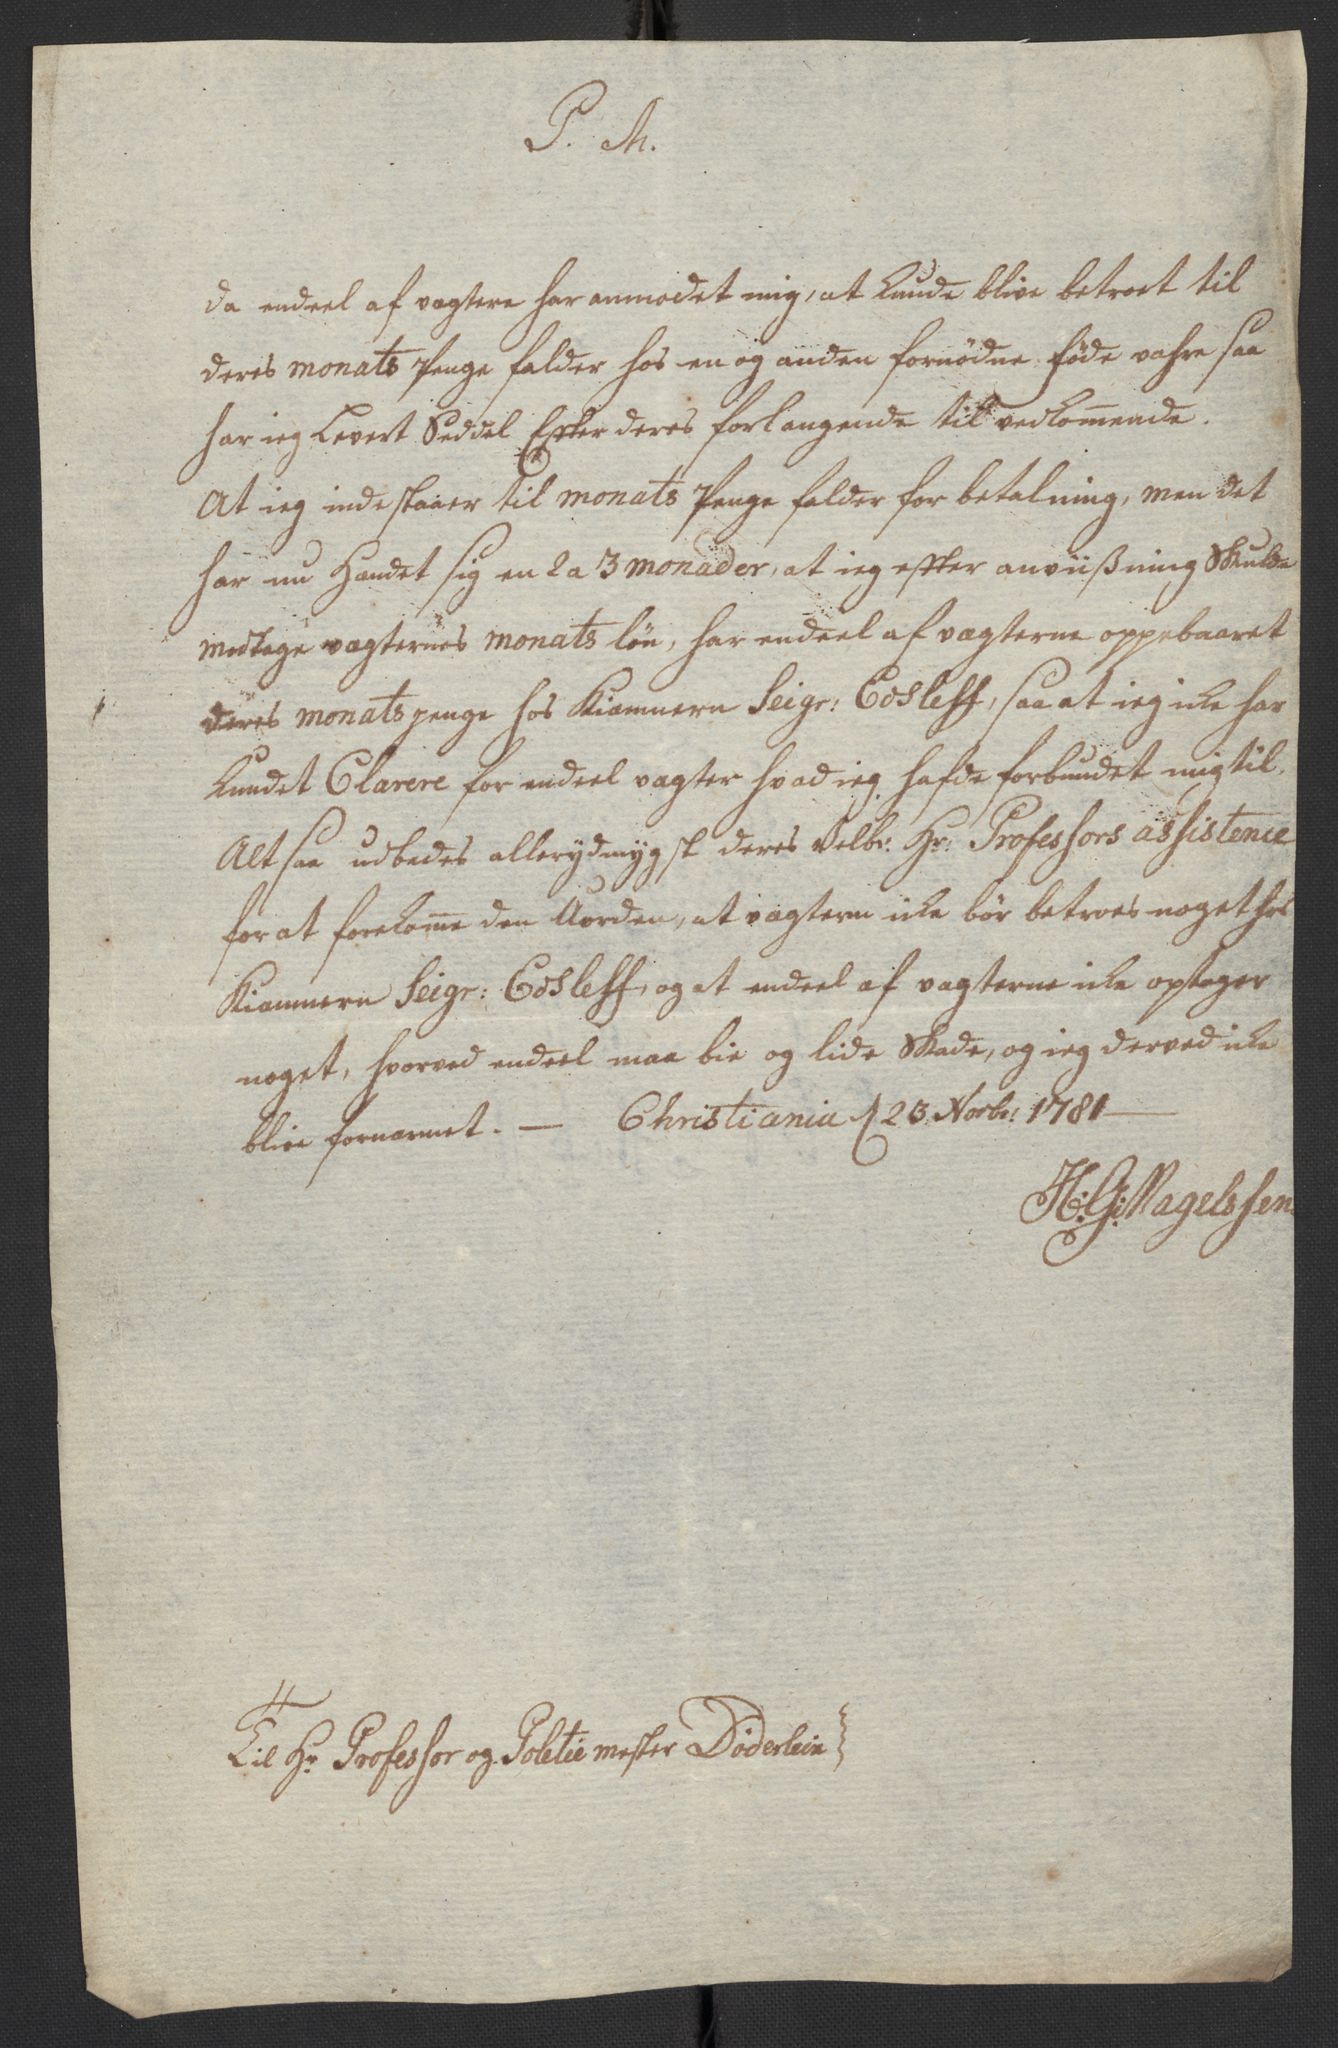 P. M.
da endeel af vægtere har anmodet mig, at kunde blive betroet til
deres monats Penge falder hos en og anden fornødne føde vahre saa
har ieg Levert Seddel Efter deres forlangende til vedkom̅ende.
At ieg indestaaer til monats Penge falder for betalning, men det
har nu Hændet sig en 2 a 3 monader, at ieg efter anviißning Skulde
modtage vægternes monats løn, har endeel af vægterne oppebaaret
deres monatspenge hos Kiæmnern Seigr: Edsleff, saa at ieg icke har
kundet Clarere for endeel vægter hvad ieg hafde forbundet mig til,
Alt saa udbedes allerydmygst deres Velbr: Hr: Professors assistence
for at forekom̅e den Uorden, at vægtern icke bør betroes noget hos
Kiæmnern Seigr: Edsleff, og at endeel af vægterne icke optager
noget, hvorved endeel maa bie og lide Skade, og ieg derved icke
blive fornærmet. — Christiania d 23 Novbr: 1781 —
H: G: Nagelssen
Til Hr Professor og Poletie mester Døderlein